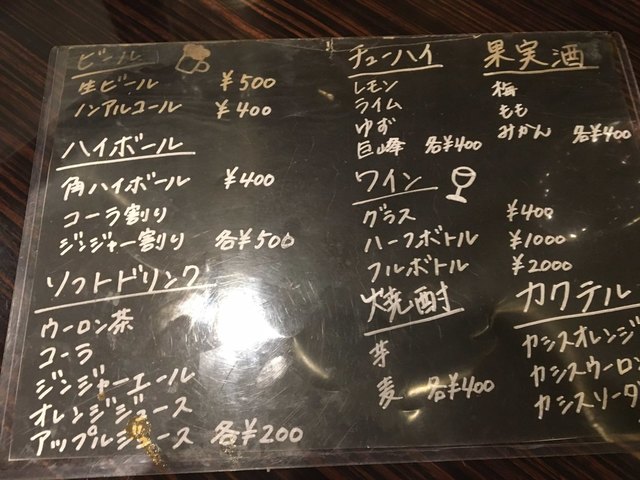 ビール
生ビール ¥500
ノンアルコール ¥400
ハイボール
角ハイボール ¥400
コーラ割り
ジンジャー割り 各¥500
ソフトドリンク
ウーロン茶
コーラ
ジンジャーエール
オレンジジュース
アップルジュース 各¥200
チューハイ
レモン
ライム
ゆず
巨峰 各¥400
果実酒
梅
もも
みかん 各¥400
ワイン
グラス ¥400
ハーフボトル ¥1000
フルボトル ¥2000
焼酎
芋
麦 各¥400
カクテル
カシスオレンジ
カシスウーロン
カシスソーダ